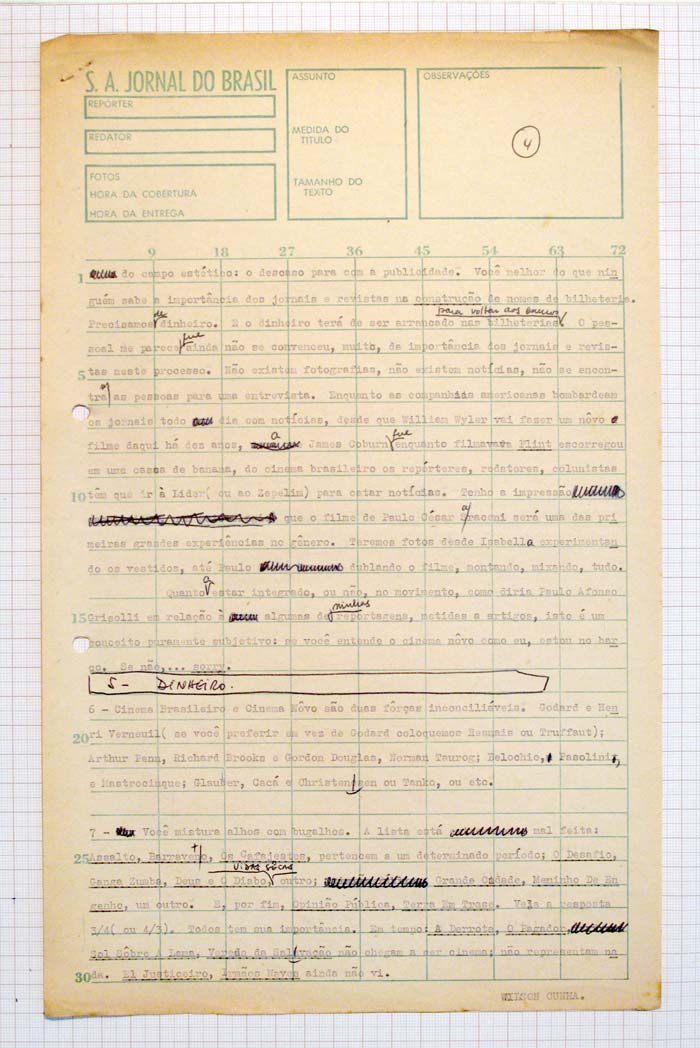 S. A. JORNAL DO BRASIL
REPÓRTER
REDATOR
FOTOS
HORA DA COBERTURA
HORA DA ENTREGA
ASSUNTO
MEDIDA DO
TITULO
TAMANHO DO
TEXTO
OBSERVAÇÕES
4
9 18 27 36 45 54 63 72
1 do campo estético: o descaso para com a publicidade. Você melhor do que nin
guém sabe a importância dos jornais e revistas na construção de nomes de bilheteria.
para voltar aos
Precisamos de dinheiro. E o dinheiro terá de ser arrancado nas bilheterias. O pes-
soal me parece que ainda não se convenceu, muito, da importância dos jornais e revis-
5 tas neste processo. Não existem fotografias, não existem notícias, não se encon-
tra as pessoas para uma entrevista. Enquanto as companhias americanas bombardeam
os jornais todo dia com notícias, desde que William Wyler vai fazer um nôvo
filme daqui há dez anos, a James Coburn que enquanto filmava Flint escorregou
em uma casca de banana, do cinema brasileiro os repórteres, redatores, colunistas
10 têm que ir à Lider( ou ao Zepelim) para catar notícias. Tenho a impressão
que o filme de Paulo César Saraceni será uma das pri
meiras grandes experiências no gênero. Teremos fotos desde Isabella experimentan
do os vestidos, até Paulo dublando o filme, montando, mixando, tudo.
Quanto a estar integrado, ou não, no movimento, como diria Paulo Afonso
15 Grisolli em relação à algumas de minhas reportagens, metidas a artigos, isto é um
conceito puramente subjetivo: se você entende o cinema nôvo como eu, estou no bar
co. Se não,... sorry.
5 - DINHEIRO.
6 - Cinema Brasileiro e Cinema Nôvo são duas fôrças inconciliáveis. Godard e Hen
20 ri Verneuil( se você preferir em vez de Godard coloquemos Resnais ou Truffaut);
Arthur Penn, Richard Brooks e Gordon Douglas, Norman Taurog; Belochio, Pasolini,
e Mastrocinque; Glauber, Cacá e Christensen ou Tanko, ou etc.
7 - Você mistura alhos com bugalhos. A lista está mal feita:
25 Assalto, Barravento, Os Cafajestes, pertencem a um determinado período; O Desafio,
VIDAS SÊCAS
Ganga Zumba, Deus e O Diabo, outro; Grande Cidade, Menino De En
genho, um outro. E, por fim, Opinião Pública, Terra Em Transe. Vale a resposta
3/4( ou 4/3). Todos tem sua importância. Em tempo: A Derrota, O Pagador,
Sol Sôbre A Lama, Vereda da Salvação não chegam a ser cinema; não representam na
30 da. El Justiceiro, Irmãos Naves ainda não vi.
WILSON CUNHA.